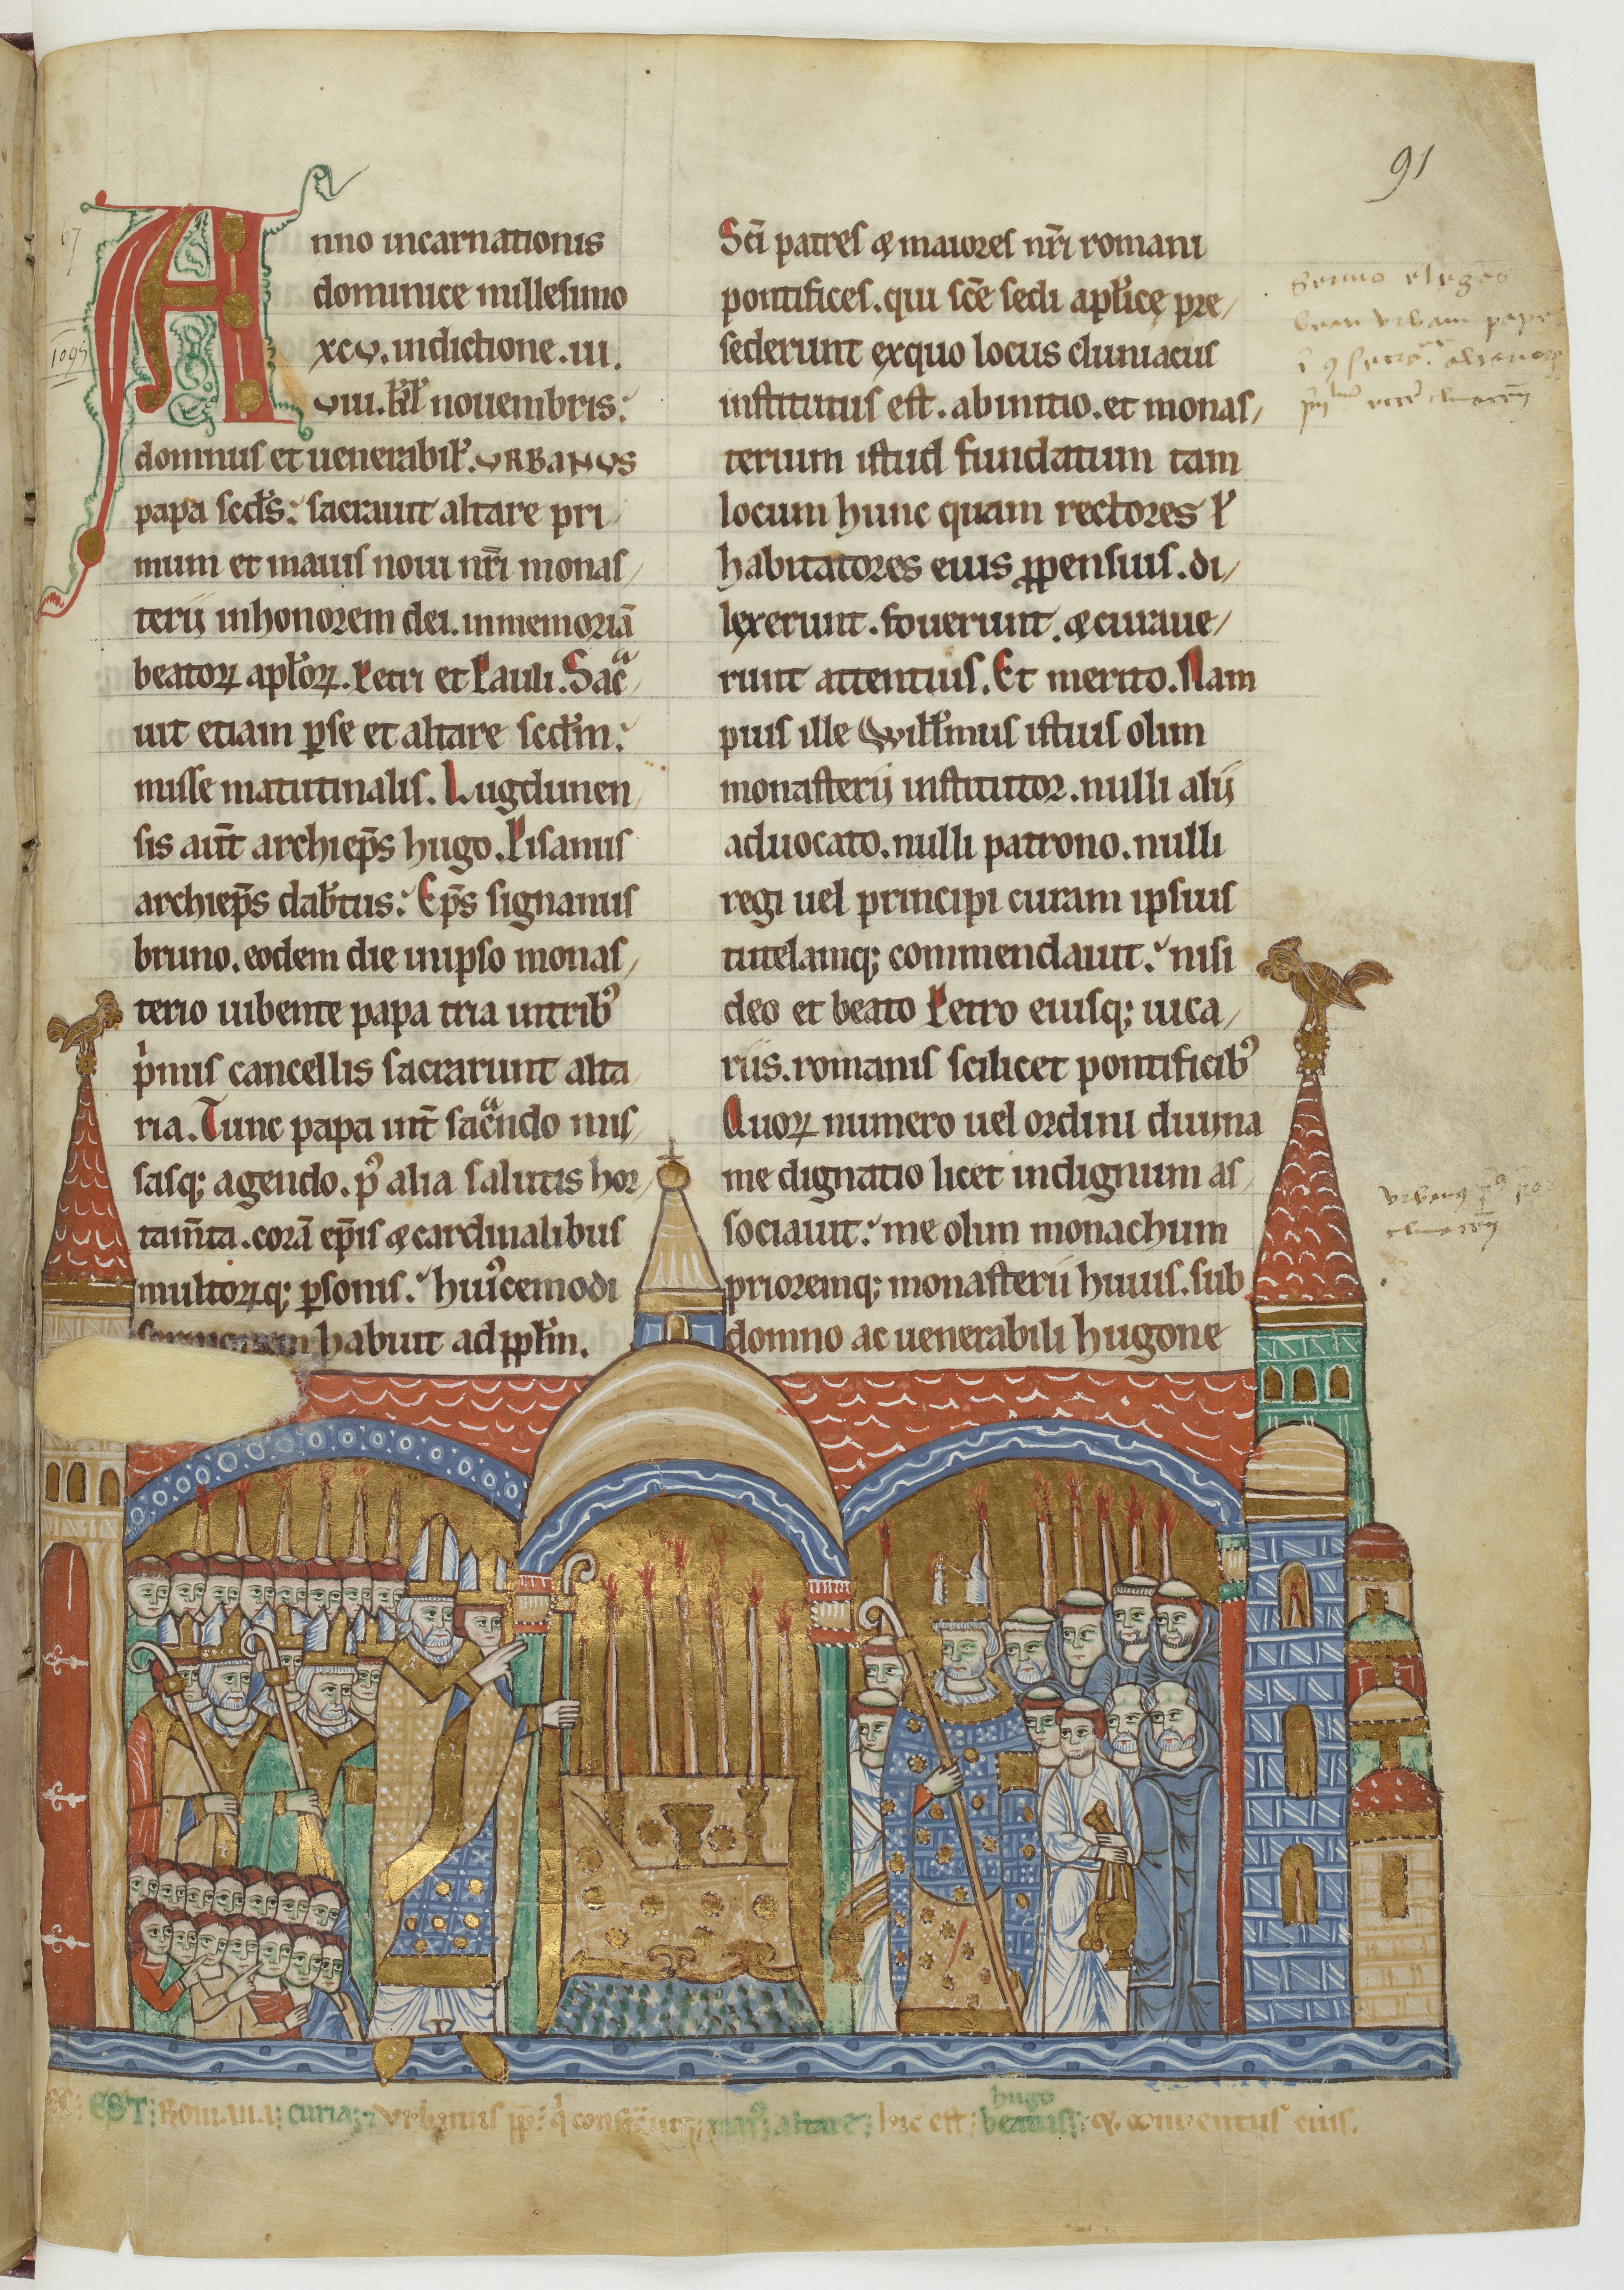 91
Anno incarnationis
dominice millesimo
xcv. indictione. iii.
viii. kl' nouembris:
domnus et uenerabil'. URBANUS
papa scd's: sacrauit altare pri
mum et maius noui nr̄i monas/
terij inhonorem dei. inmemoriā
beatoꝝ apl'oꝝ. Petri et Pauli. Sac̾/
uit etiam ꝑse et altare scd'm:
misse matutinalis. Lugdunen/
sis aut̄ archiep̄s hugo. Pisanus
archiep̄s dab'tus: Ep̄s signanus
bruno. eodem die inipso monas/
terio iubente papa tria intrib'
p'mis cancellis sacrarunt alta
ria. Tunc papa int̄ sac̾ndo mis/
sasq; agendo. p' alia salutis hor/
tam̄ta. corā ep̄is & cardinalibus
multoꝝq; ꝑsonis: hui'cemodi
habuit ad ppl'm.
Sc̄i patres & maiores nr̄i romani
pontifices. qui sc̄e sedi apl'icę pre/
sederunt exquo locus cluniacus
institutus est. abinitio. et monas/
terium istud fundatum tam
locum hunc quam rectores l'
habitatores eius ꝓpensius. di/
lexerunt. fouerunt. & curaue/
runt attentius. Et merito. Nam
pius ille Will'mus istius olim
monasterij institutor. nulli alij
aduocato. nulli patrono. nulli
regi uel principi curam ipsius
tutelamq; commendauit: nisi
deo et beato Petro eiusq; uica/
riis. romanis scilicet pontificib'
Quoꝝ numero uel ordini diuina
me dignatio licet indignum as/
sociauit: me olim monachum
prioremq; monasterii huius. sub
domno ac uenerabili hugone
1095
EST: Romana: curia: & Urbanus pp̄: q' consec̾uit: mai' altare: hic est: beatus: hugo & conuentus eius.